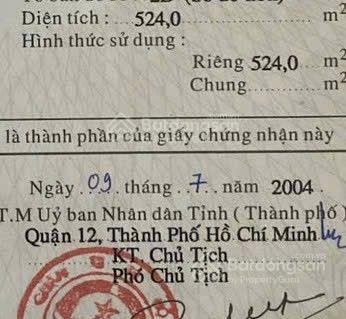 Diện tích : 524,0 m2
Hình thức sử dụng :
Riêng 524,0 m2
Chung m2
là thành phần của giấy chứng nhận này
Ngày 09 tháng 7 năm 2004
T.M Uỷ ban Nhân dân Tỉnh ( Thành phố )
Quận 12, Thành Phố Hồ Chí Minh
KT. Chủ Tịch
Phó Chủ Tịch
Batdongsan
by PropertyGuru